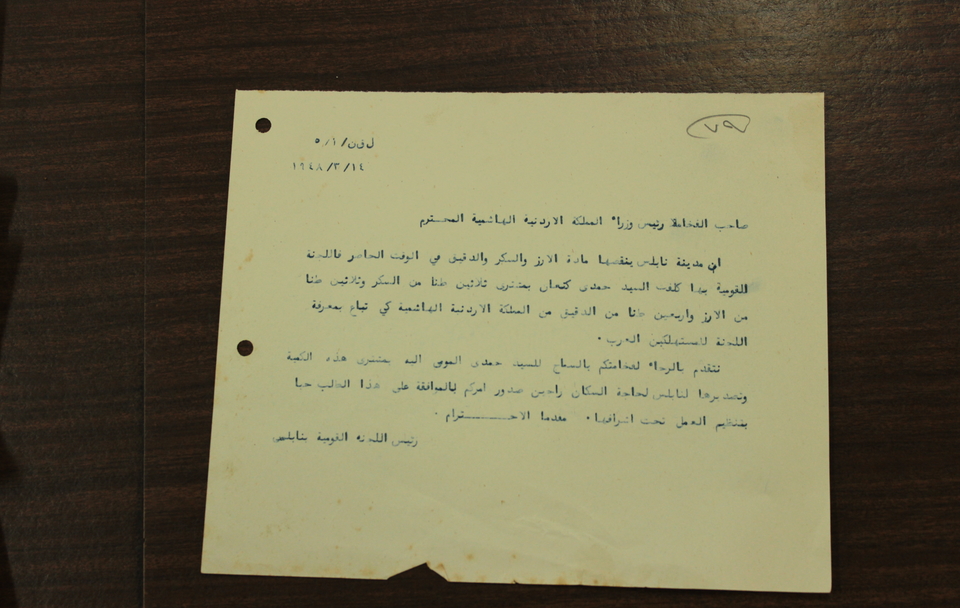 ٧٩
ل ق ن/١/٥
١٩٤٨/٣/١٤
صاحب الفخامة رئيس وزراء المملكة الاردنية الهاشمية المحترم
ان مدينة نابلس ينقصها مادة الارز والسكر والدقيق في الوقت الحاضر فاللجنة
القومية بها كلفت السيد حمدى كنعان بمشترى ثلاثين طنا من السكر وثلاثين طنا
من الارز واربعين طنا من الدقيق من المملكة الاردنية الهاشمية كي تباع بمعرفة
اللجنة للمستهلكين العرب .
نتقدم بالرجاء لفخامتكم بالسماح للسيد حمدى المومى اليه بمشترى هذه الكمية
وتصديرها لنابلس لحاجة السكان راجين صدور امركم بالموافقة على هذا الطلب حبا
بتنظيم العمل تحت اشرافها . مقدما الاحـــــــترام .
رئيس اللجنة القومية بنابلس